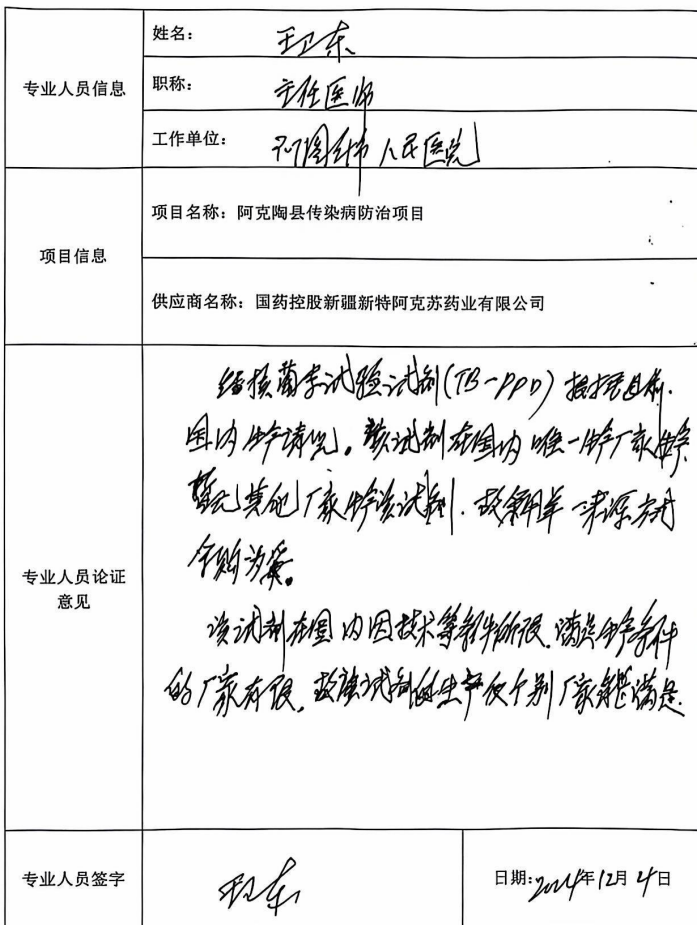 专业人员信息
姓名：王卫东
职称：主任医师
工作单位：阿图什市人民医院
项目信息
项目名称：阿克陶县传染病防治项目
供应商名称：国药控股新疆新特阿克苏药业有限公司
专业人员论证
意见
结核菌素试验试剂(TB-PPD)根据目前
国内生产情况。该试剂在国内唯一生产厂家生产
暂无其他厂家生产该试剂.故采用单一来源方式
采购为宜。
该试剂在国内因技术等条件所限.满足生产条件
的厂家有限.故该试剂的生产仅个别厂家能满足.
专业人员签字
王卫东
日期:2024年12月4日